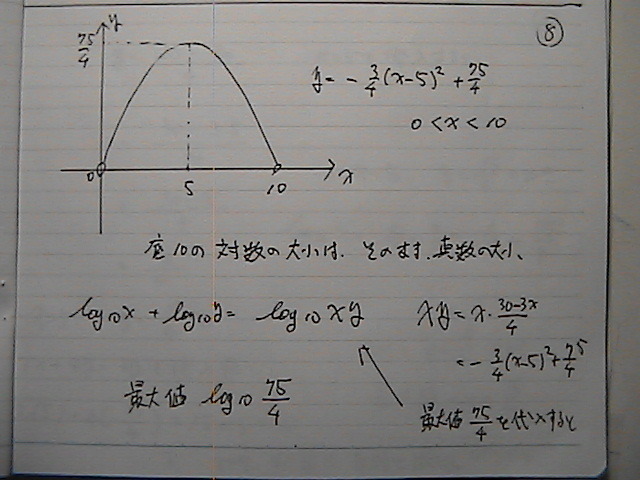 ⑧
y
75/4
0
5
10
x
y = -3/4(x-5)² + 75/4
0 < x < 10
底10の対数の大小は、そのまま、真数の大小、
log₁₀x + log₁₀y = log₁₀xy
xy = x・30-3x/4
= -3/4(x-5)² + 75/4
最大値 log₁₀ 75/4
最大値 75/4 を代入すると